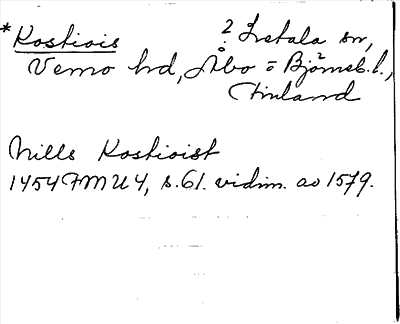 *Kostiois ? Letala sn,
Vemo hd, Åbo = Björneb. l.,
Finland
Nills Kostioist
1454 FMU 4, s. 61. vidim. ao 1579.